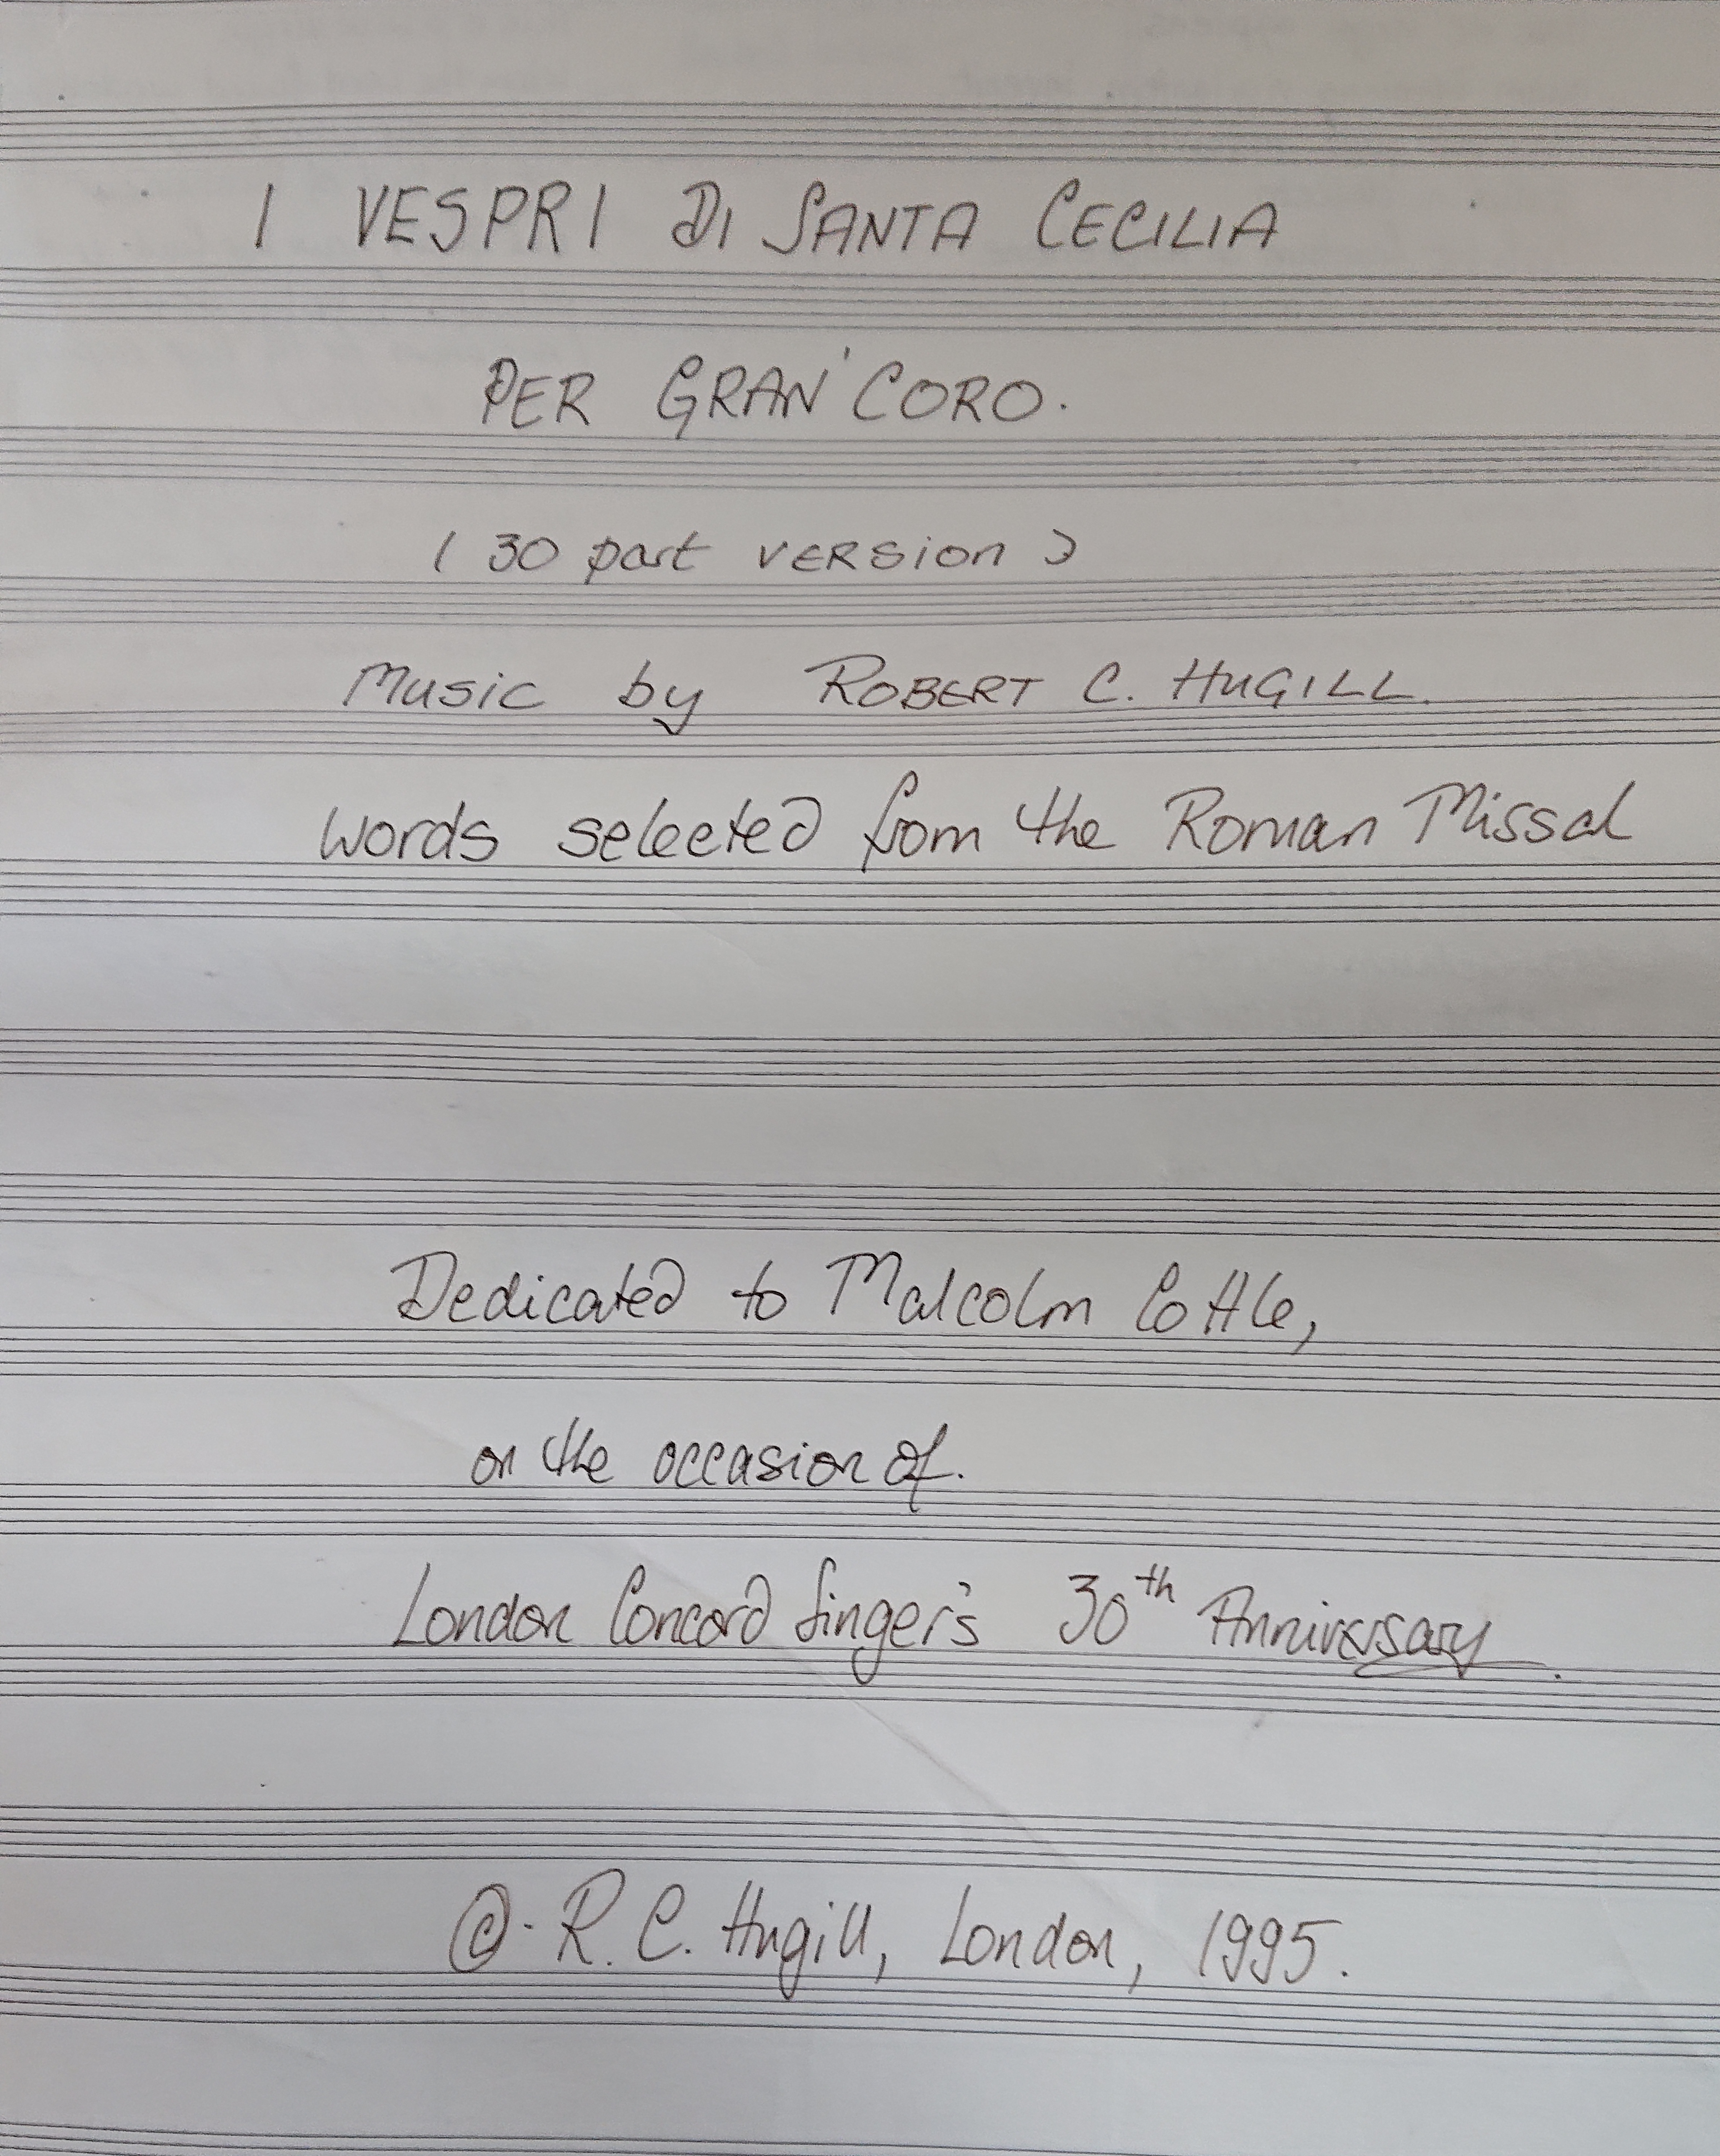 I VESPRI DI SANTA CECILIA
PER GRAN' CORO.
( 30 part VERSION )
Music by ROBERT C. HUGILL.
words selected from the Roman Missal
Dedicated to Malcolm Cottle,
on the occasion of.
London Concord Singer's 30th Anniversary.
©. R. C. Hugill, London, 1995.